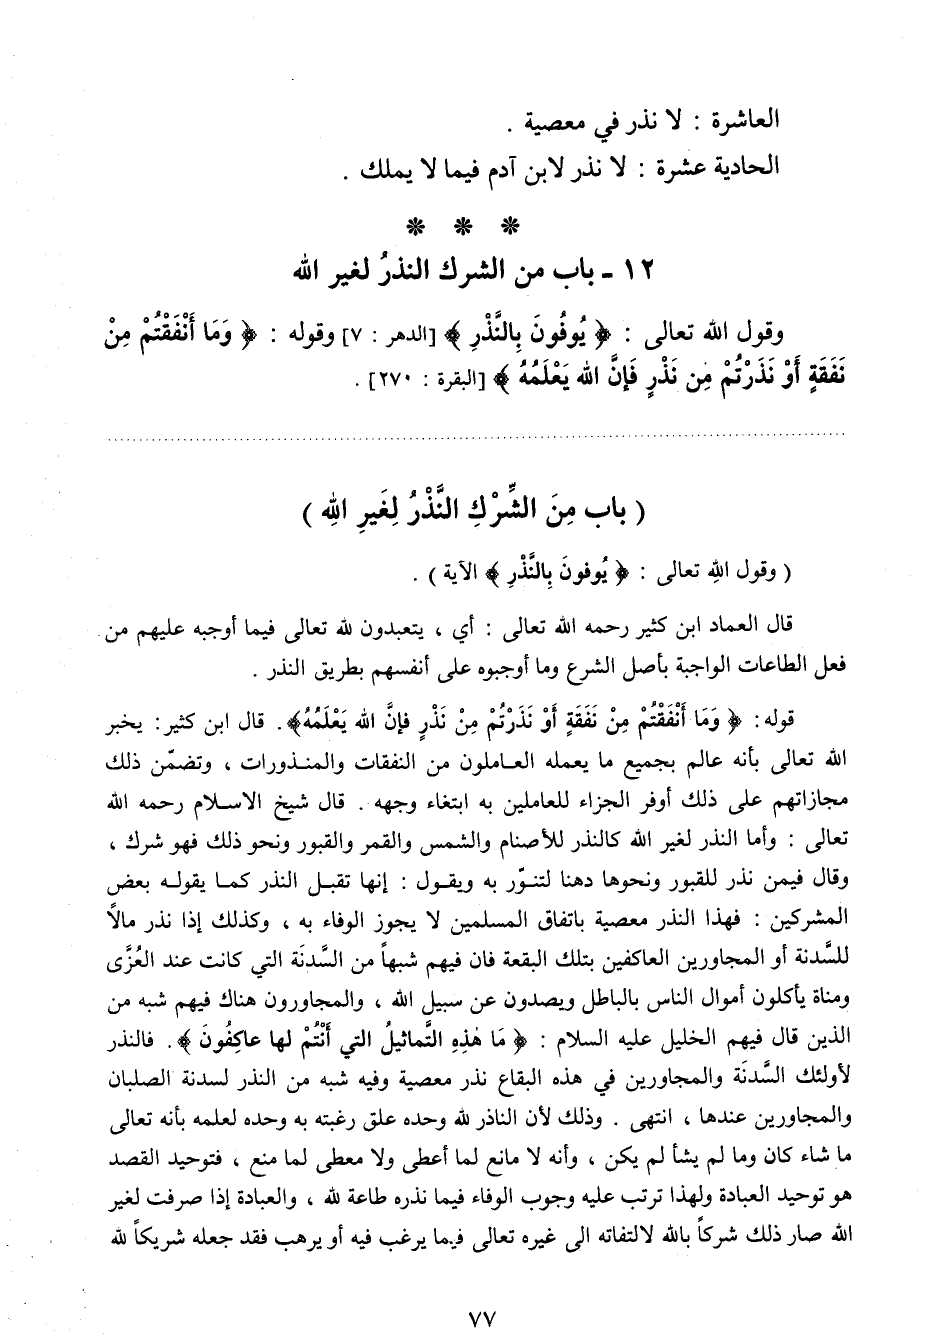 العاشرة : لا نذر في معصية .
الحادية عشرة : لا نذر لابن آدم فيما لا يملك .
* * *
١٢ - باب من الشرك النذرُ لغير الله
وقول الله تعالى : ﴿ يُوفُونَ بِالنَّذْرِ ﴾ [الدهر : ٧] وقوله : ﴿ وَمَا أَنْفَقْتُمْ مِنْ
نَفَقَةٍ أَوْ نَذَرْتُمْ مِن نَذْرٍ فَإِنَّ الله يَعْلَمُهُ ﴾ [البقرة : ٢٧٠] .
( باب مِنَ الشِّرْكِ النَّذْرُ لِغَيرِ اللهِ )
( وقول اللهِ تعالى : ﴿ يُوفونَ بِالنَّذْرِ ﴾ الآية ) .
قال العماد ابن كثير رحمه الله تعالى : أي ، يتعبدون لله تعالى فيما أوجبه عليهم من
فعل الطاعات الواجبة بأصل الشرع وما أوجبوه على أنفسهم بطريق النذر .
قوله: ﴿ وَمَا أَنْفَقْتُمْ مِنْ نَفَقَةٍ أَوْ نَذَرْتُمْ مِنْ نَذْرٍ فإنَّ الله يَعْلَمُهُ﴾. قال ابن كثير: يخبر
الله تعالى بأنه عالم بجميع ما يعمله العاملون من النفقات والمنذورات ، وتضمّن ذلك
مجازاتهم على ذلك أوفر الجزاء للعاملين به ابتغاء وجهه . قال شيخ الاسلام رحمه الله
تعالى : وأما النذر لغير الله كالنذر للأصنام والشمس والقمر والقبور ونحو ذلك فهو شرك ،
وقال فيمن نذر للقبور ونحوها دهنا لتنوّر به ويقول : إنها تقبل النذر كما يقوله بعض
المشركين : فهذا النذر معصية باتفاق المسلمين لا يجوز الوفاء به ، وكذلك إذا نذر مالاً
للسَّدنة أو المجاورين العاكفين بتلك البقعة فان فيهم شبهاً من السَّدنَة التي كانت عند العُزَّى
ومناة يأكلون أموال الناس بالباطل ويصدون عن سبيل الله ، والمجاورون هناك فيهم شبه من
الذين قال فيهم الخليل عليه السلام : ﴿ مَا هٰذِهِ التَّماثيلُ التي أَنْتُمْ لها عاكِفُونَ ﴾ . فالنذر
لأولئك السَّدنَة والمجاورين في هذه البقاع نذر معصية وفيه شبه من النذر لسدنة الصلبان
والمجاورين عندها ، انتهى . وذلك لأن الناذر لله وحده علق رغبته به وحده لعلمه بأنه تعالى
ما شاء كان وما لم يشأ لم يكن ، وأنه لا مانع لما أعطى ولا معطى لما منع ، فتوحيد القصد
هو توحيد العبادة ولهذا ترتب عليه وجوب الوفاء فيما نذره طاعة لله ، والعبادة إذا صرفت لغير
الله صار ذلك شركاً بالله لالتفاته الى غيره تعالى فيما يرغب فيه أو يرهب فقد جعله شريكاً لله
٧٧